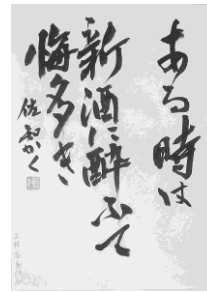 ある時は
新酒に酔ふて
悔多き
佐知かく